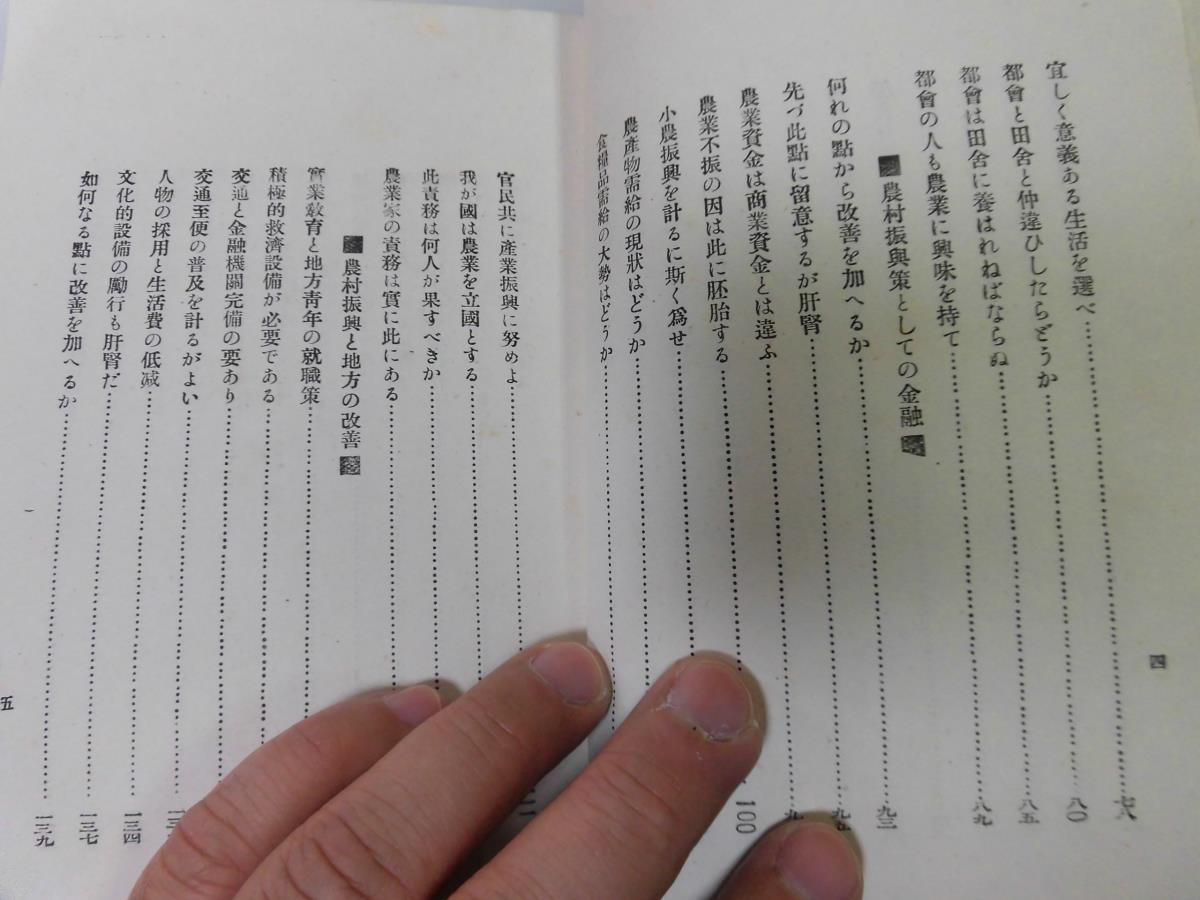 宜しく意義ある生活を選べ
都會と田舍と仲違ひしたらどうか 八〇
都會は田舍に養はれねばならぬ 八五
都會の人も農業に興味を持て 八九
農村振興策としての金融
何れの點から改善を加へるか 九三
先づ此點に留意するが肝腎
農業資金は商業資金とは違ふ
農業不振の因は此に胚胎する 100
小農振興を計るに斯く爲せ
農產物需給の現狀はどうか
食糧品需給の大勢はどうか
四
官民共に產業振興に努めよ
我が國は農業を立國とする
此責務は何人が果すべきか
農業家の責務は實に此にある
農村振興と地方の改善
實業敎育と地方靑年の就職策
積極的救濟設備が必要である
交通と金融機關完備の要あり
交通至便の普及を計るがよい
人物の採用と生活費の低減 一三四
文化的設備の勵行も肝腎だ 一三七
如何なる點に改善を加へるか 一三九
五